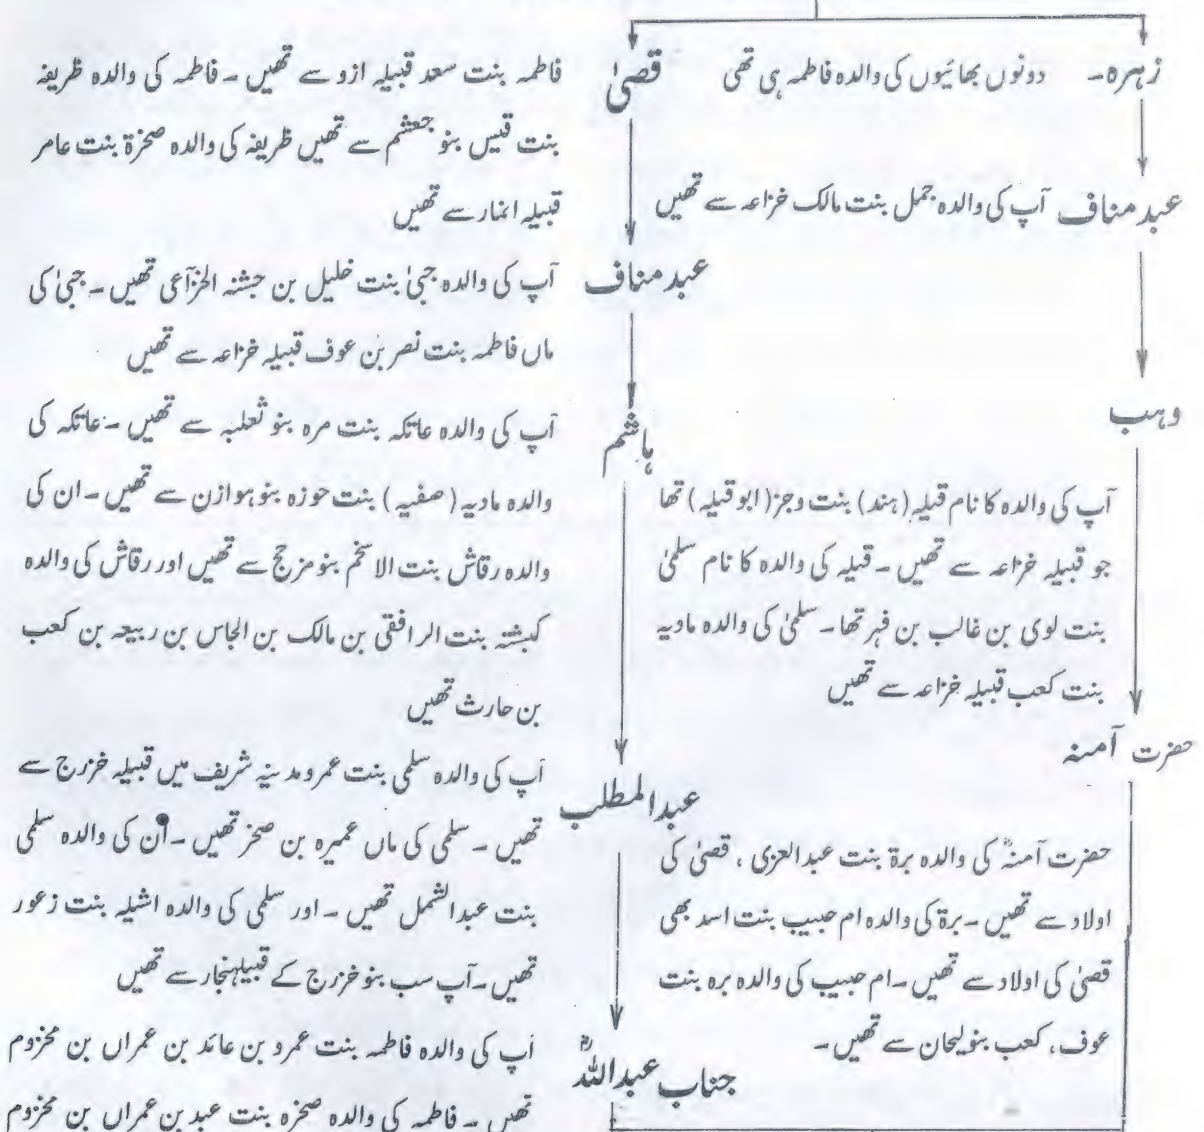 زہرہ۔ دونوں بھائیوں کی والدہ فاطمہ ہی تھی
عبد مناف آپ کی والدہ جمل بنت مالک خزاعہ سے تھیں
وہب
آپ کی والدہ کا نام قیلہ (ہند) بنت وجز (ابو قیلہ) تھا
جو قبیلہ خزاعہ سے تھیں ۔ قیلہ کی والدہ کا نام سلمیٰ
بنت لوی بن غالب بن فہر تھا۔ سلمیٰ کی والدہ مادیہ
بنت کعب قبیلہ خزاعہ سے تھیں
حضرت آمنہ
حضرت آمنہؓ کی والدہ برۃ بنت عبدالعزی ، قصیٰ کی
اولاد سے تھیں ۔ برۃ کی والدہ ام حبیب بنت اسد بھی
قصیٰ کی اولاد سے تھیں ۔ ام حبیب کی والدہ برہ بنت
عوف، کعب بنو لیحان سے تھیں ۔
قصیٰ
فاطمہ بنت سعد قبیلہ ازو سے تھیں ۔ فاطمہ کی والدہ ظریفہ
بنت قیس بنو جعشم سے تھیں ظریفہ کی والدہ صخرۃ بنت عامر
قبیلہ انمار سے تھیں
عبد مناف
آپ کی والدہ جبیٰ بنت خلیل بن حبشنہ الخزآعی تھیں ۔ جبیٰ کی
ماں فاطمہ بنت نصر بن عوف قبیلہ خزاعہ سے تھیں
ہاشم
آپ کی والدہ عاتکہ بنت مرہ بنو ثعلبہ سے تھیں ۔ عاتکہ کی
والدہ مادیہ (صفیہ) بنت حوزہ بنو ہوازن سے تھیں ۔ ان کی
والدہ رقاش بنت الا سخم بنو مزحج سے تھیں اور رقاش کی والدہ
کبشتہ بنت الرافقی بن مالک بن الجاس بن ربیعہ بن کعب
بن حارث تھیں
عبدالمطلب
آپ کی والدہ سلمی بنت عمرو مدینہ شریف میں قبیلہ خزرج سے
تھیں ۔ سلمی کی ماں عمیرہ بن صخر تھیں ۔ ان کی والدہ سلمی
بنت عبدالشمل تھیں ۔ اور سلمی کی والدہ اشیلہ بنت زعور
تھیں ۔ آپ سب بنو خزرج کے قبیلہنجار سے تھیں
جناب عبداللہؓ
آپ کی والدہ فاطمہ بنت عمرو بن عائد بن عمراں بن مخزوم
تھیں ۔ فاطمہ کی والدہ صخرہ بنت عبد بن عمراں بن مخزوم